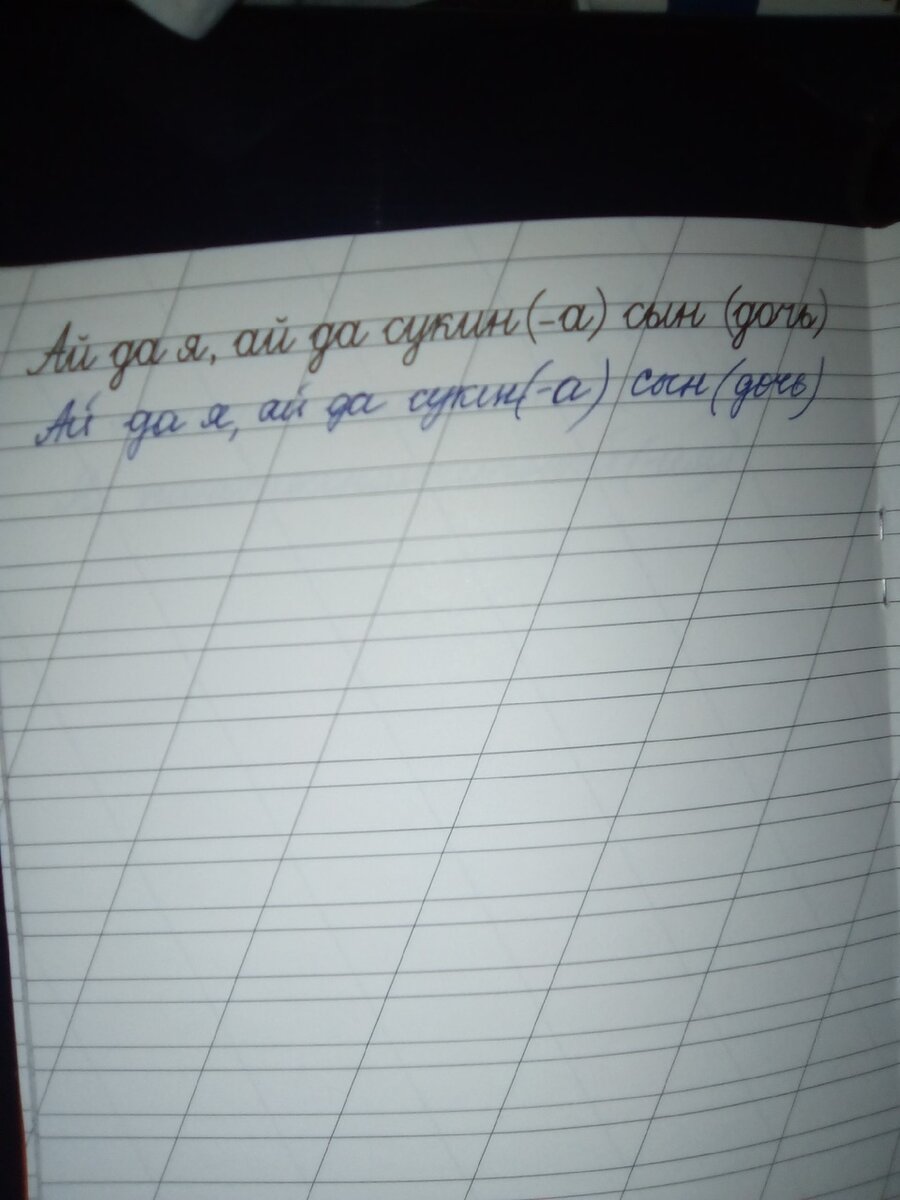 Ай да я, ай да сукин(-а) сын (дочь)
Ай да я, ай да сукин(-а) сын (дочь)